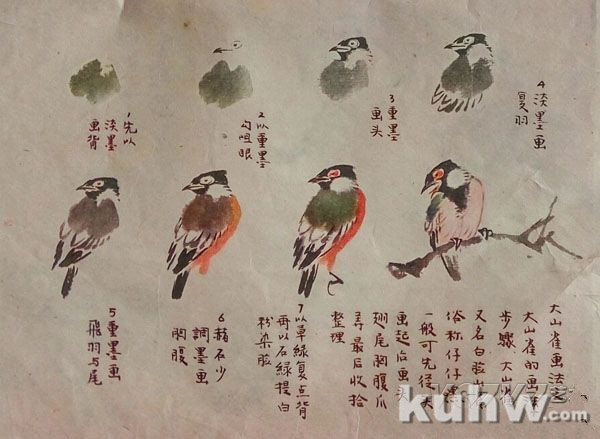 1先以
淡墨
画背
2以重墨
勾咀眼
3重墨
画头
4淡墨画
复羽
5重墨画
飛羽与尾
6赭石少
調墨画
胸腹
7以草綠复点背
再以石綠提白
粉染脸
大山雀画法之
大山雀的画
步驟 大山
又名白脸山
俗称仔仔黑
一般可先從
画起后画头
翅尾胸腹爪
等最后收拾
整理
kuhw.com